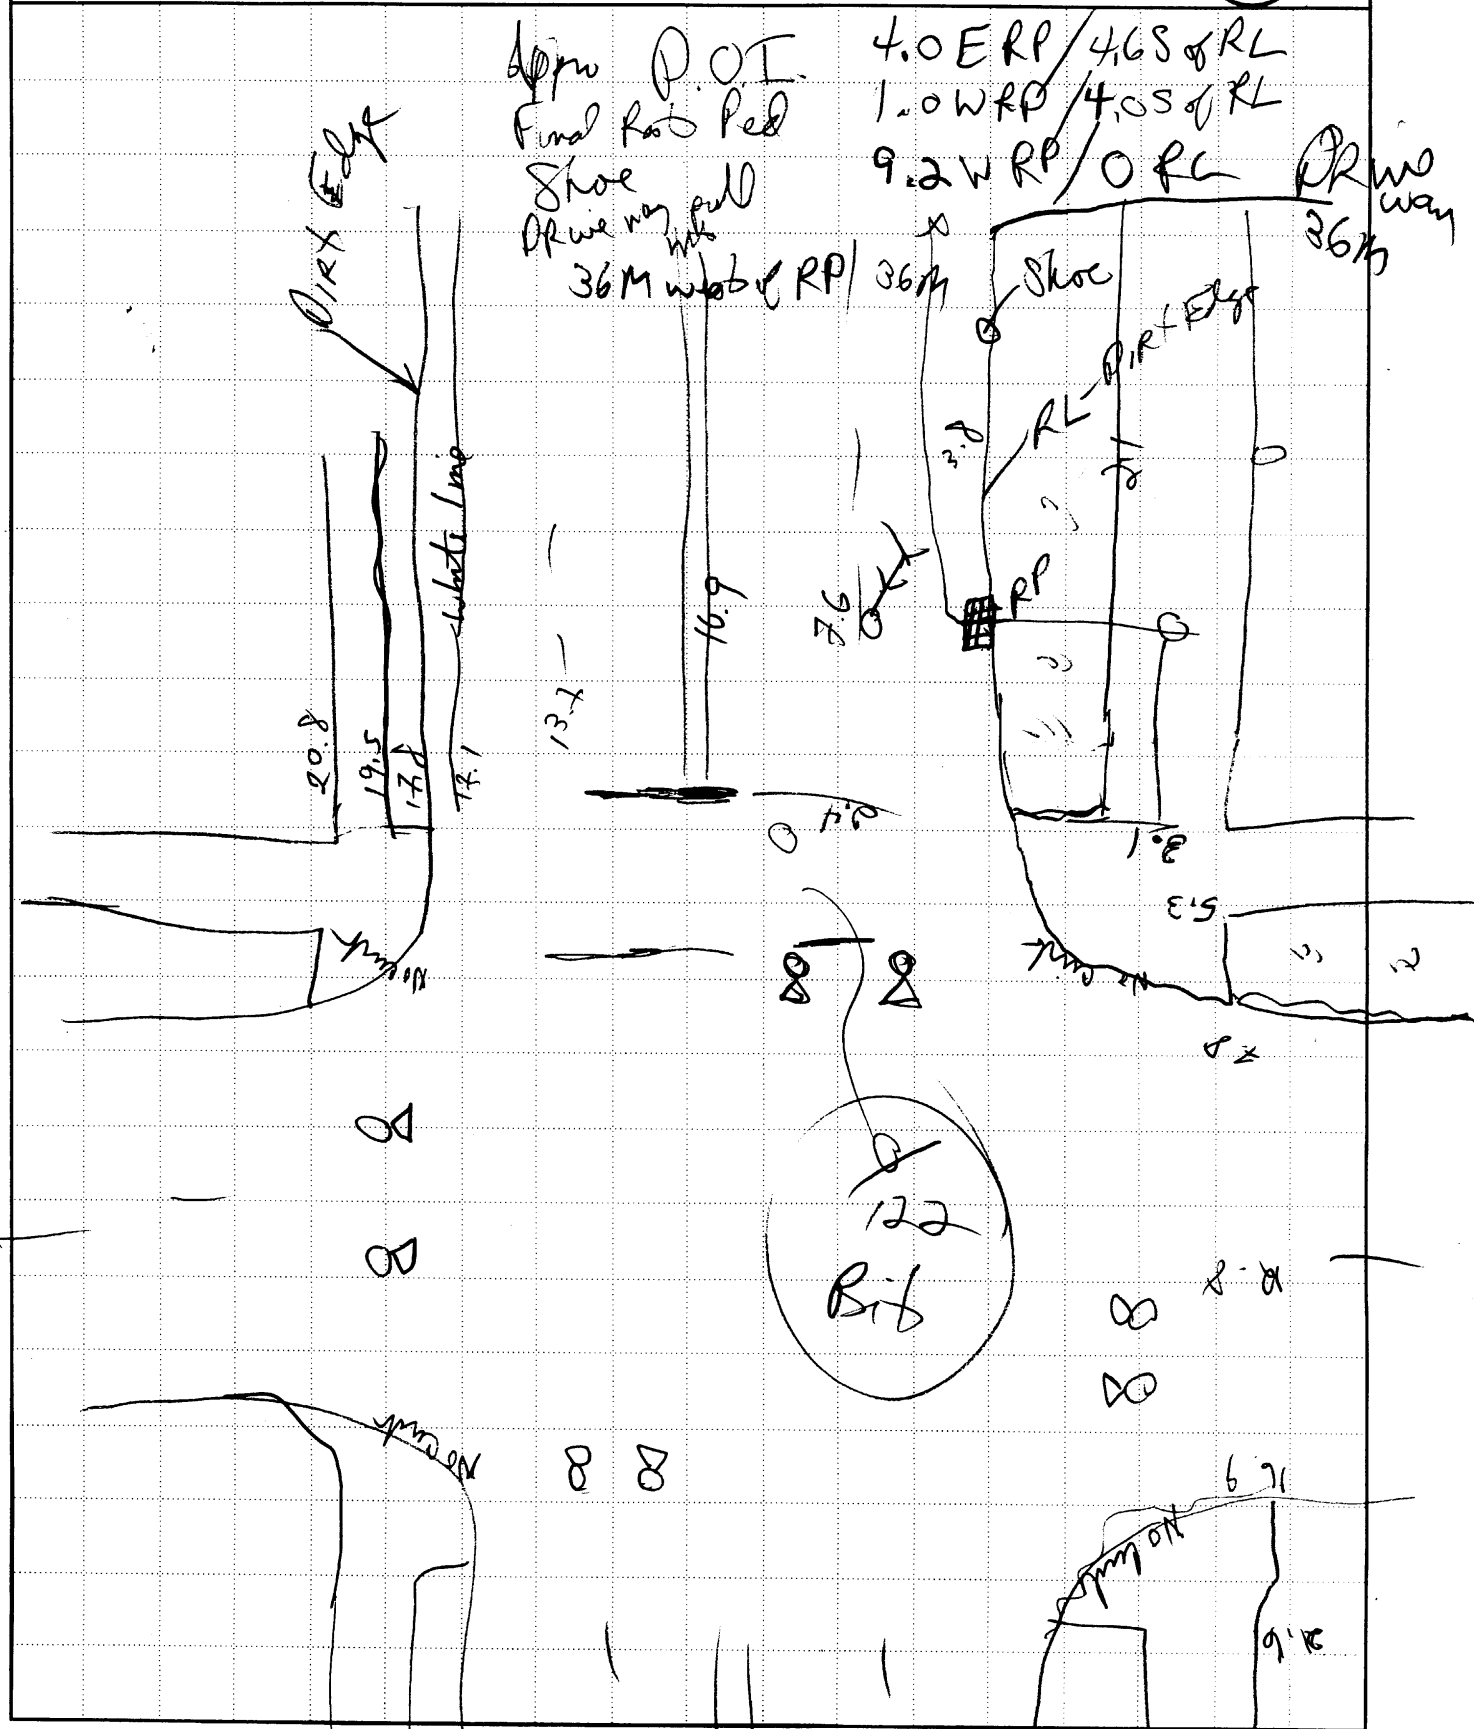 Appx P.O.I. 4.0 E RP / 4.6 S of RL
Final Rest Ped 1.0 W RP / 4.0 S of RL
Shoe 9.2 W RP / 0 RL
Driveway
36M west of RP / 36m
Driveway
36m
Dirt Edge
Shoe
RL - Dirt Edge
3.8
2.1
White Line
RP
7.6
16.9
13.7
20.8
19.5
17.8
17.1
2.4
3.1
5.3
No curb
No curb
7.8
122
Bit
No curb
No curb
16.9
21.6